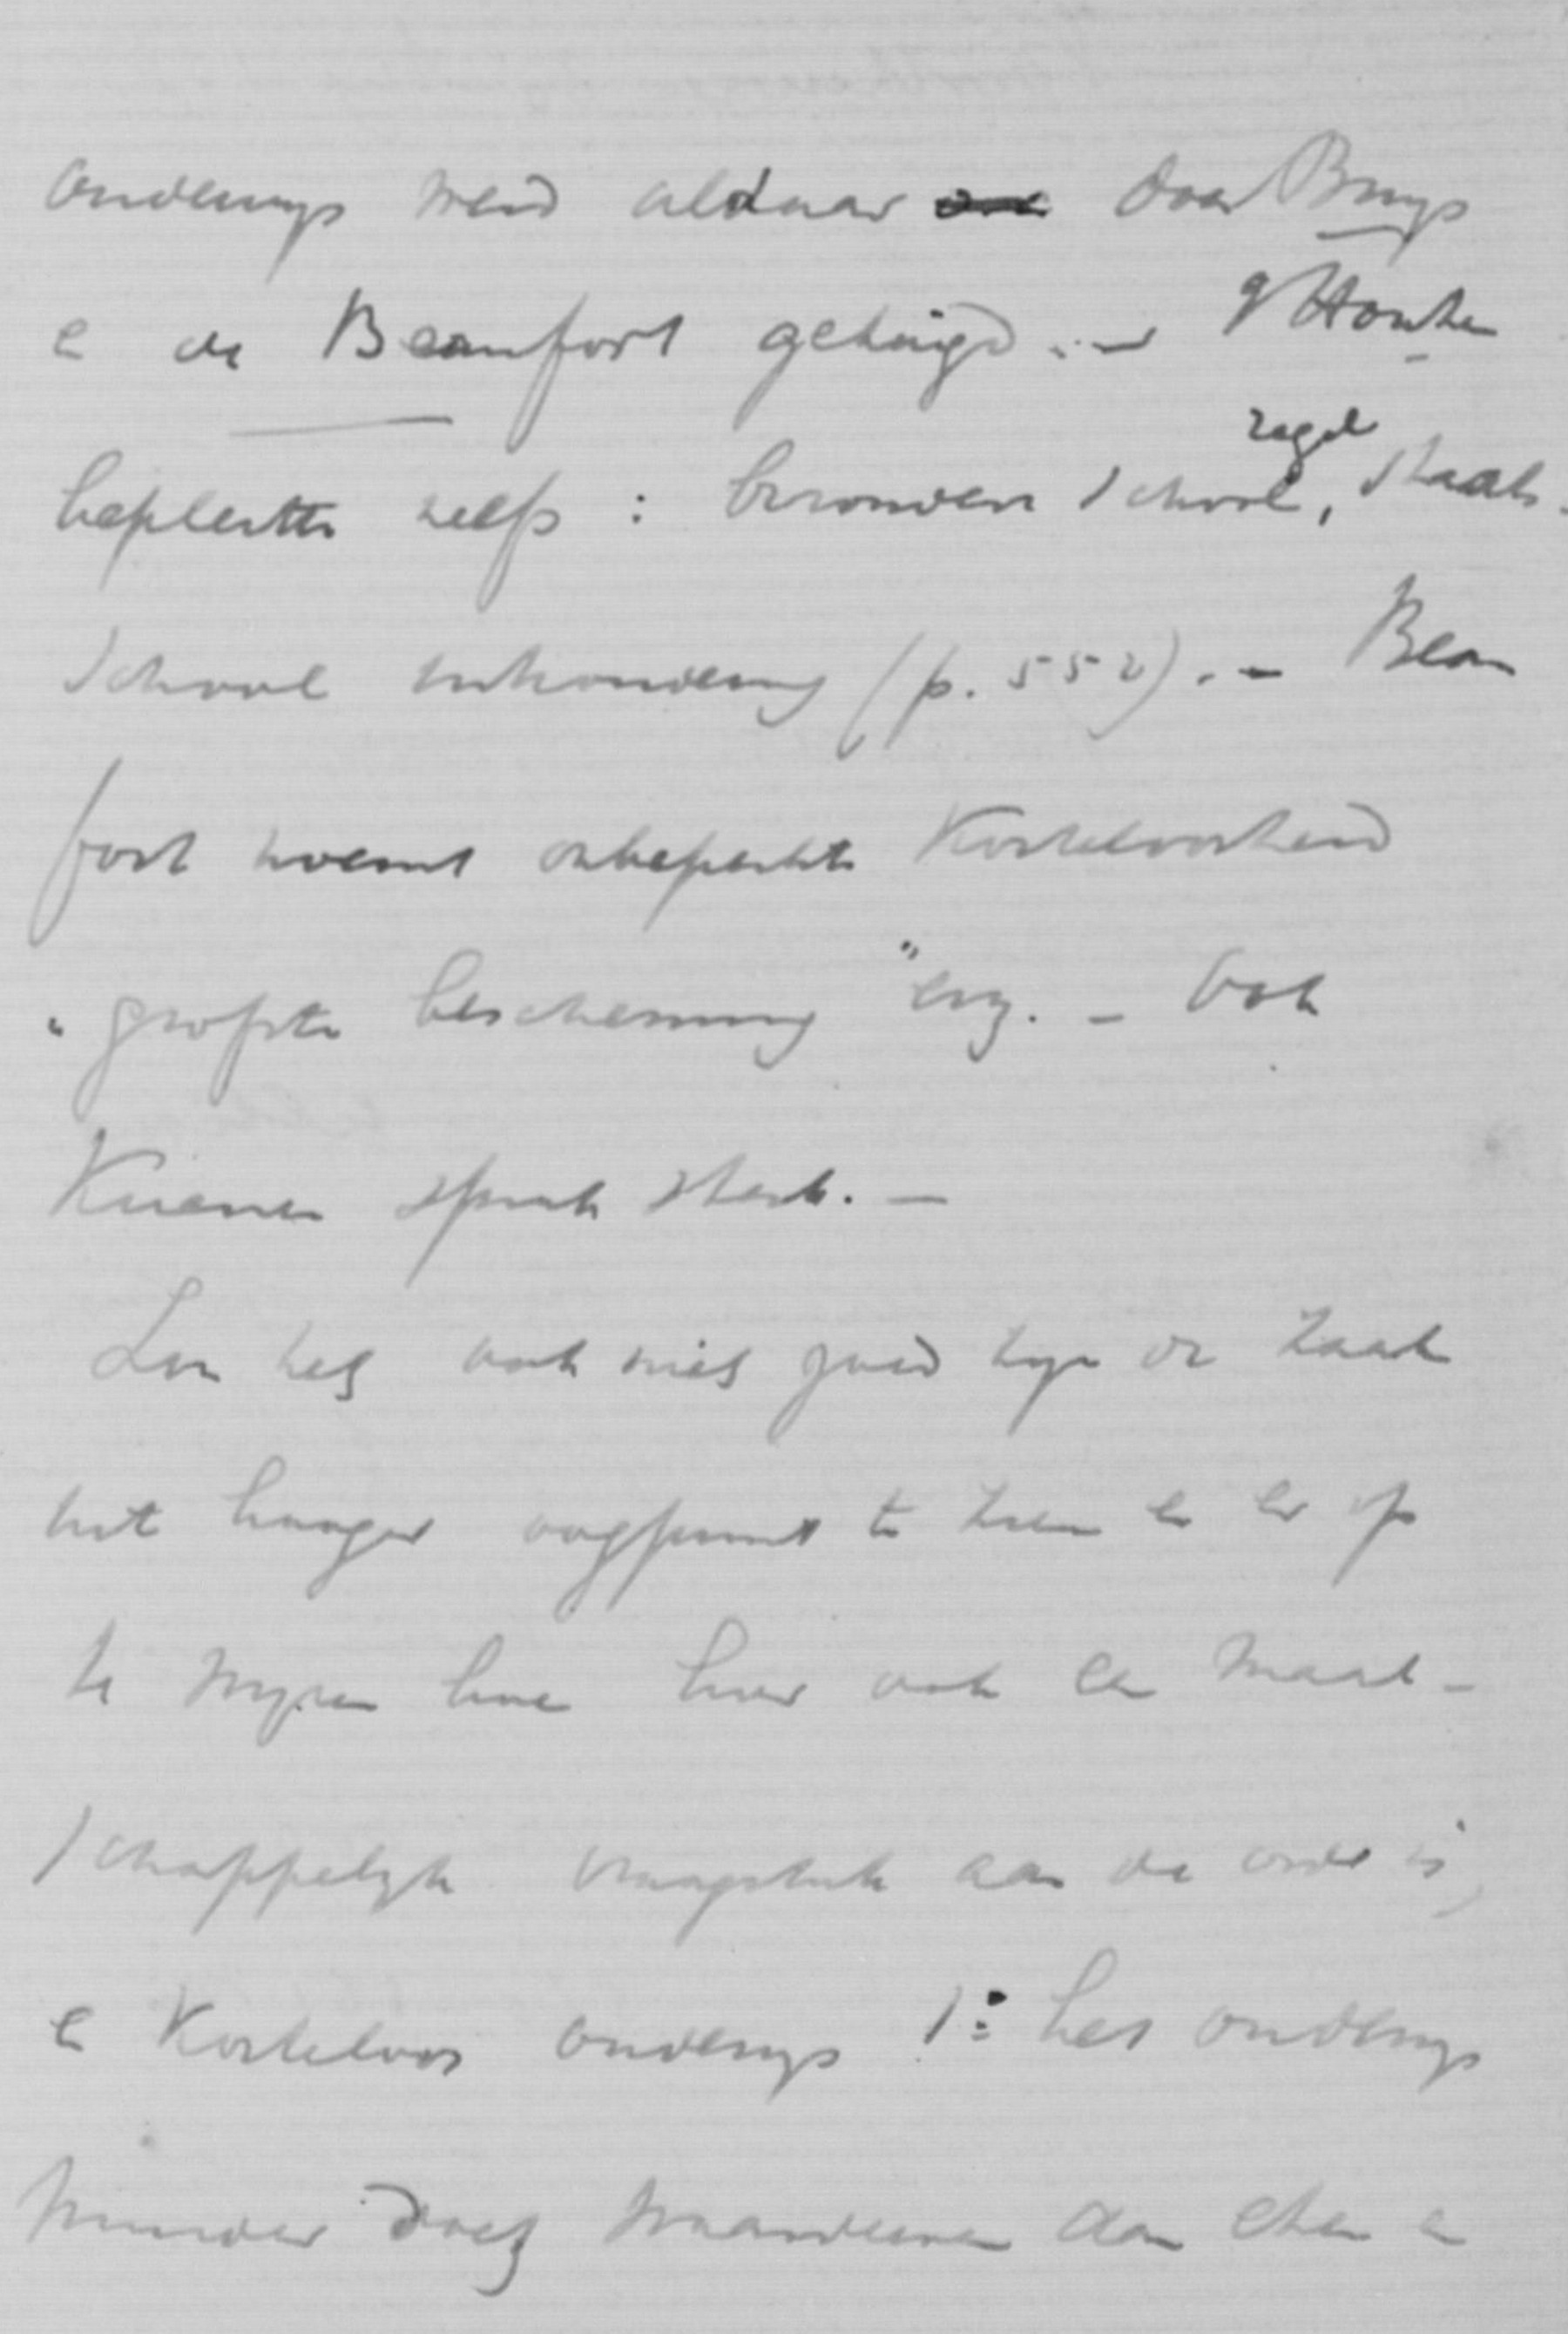 onderwijs werd aldaar door Buys
e de Beaufort getuigd. — v Houten
regel
bepleitte zelfs: bizondere school, Staats-
school uitzondering (p. 552). — Beau
fort noemt onbeperkte Kosteloosheid
"grofste bescherming" enz. — Ook
Kuenen sprak sterk. —
Zou het ook niet goed zijn de zaak
uit hooger oogpunt te zien en er op
te wijzen hoe hier ook een maat-
schappelijk vraagstuk aan de orde is,
e Kosteloos onderwijs 1: het onderwijs
minder doet waardeeren dan eten e